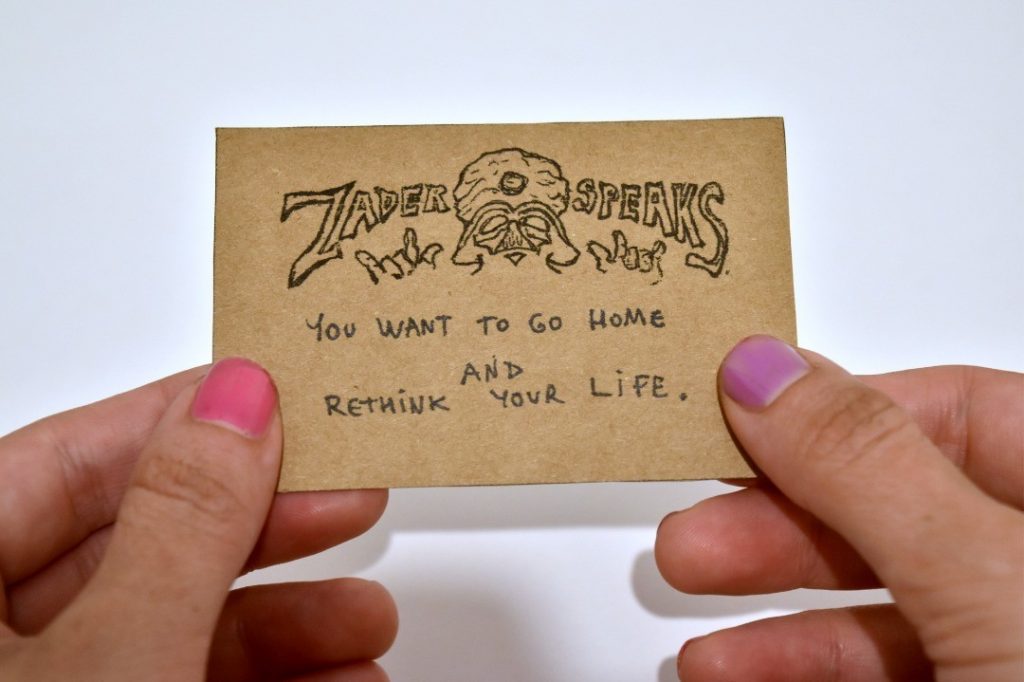 ZADER SPEAKS.
YOU WANT TO GO HOME
AND
RETHINK YOUR LIFE.